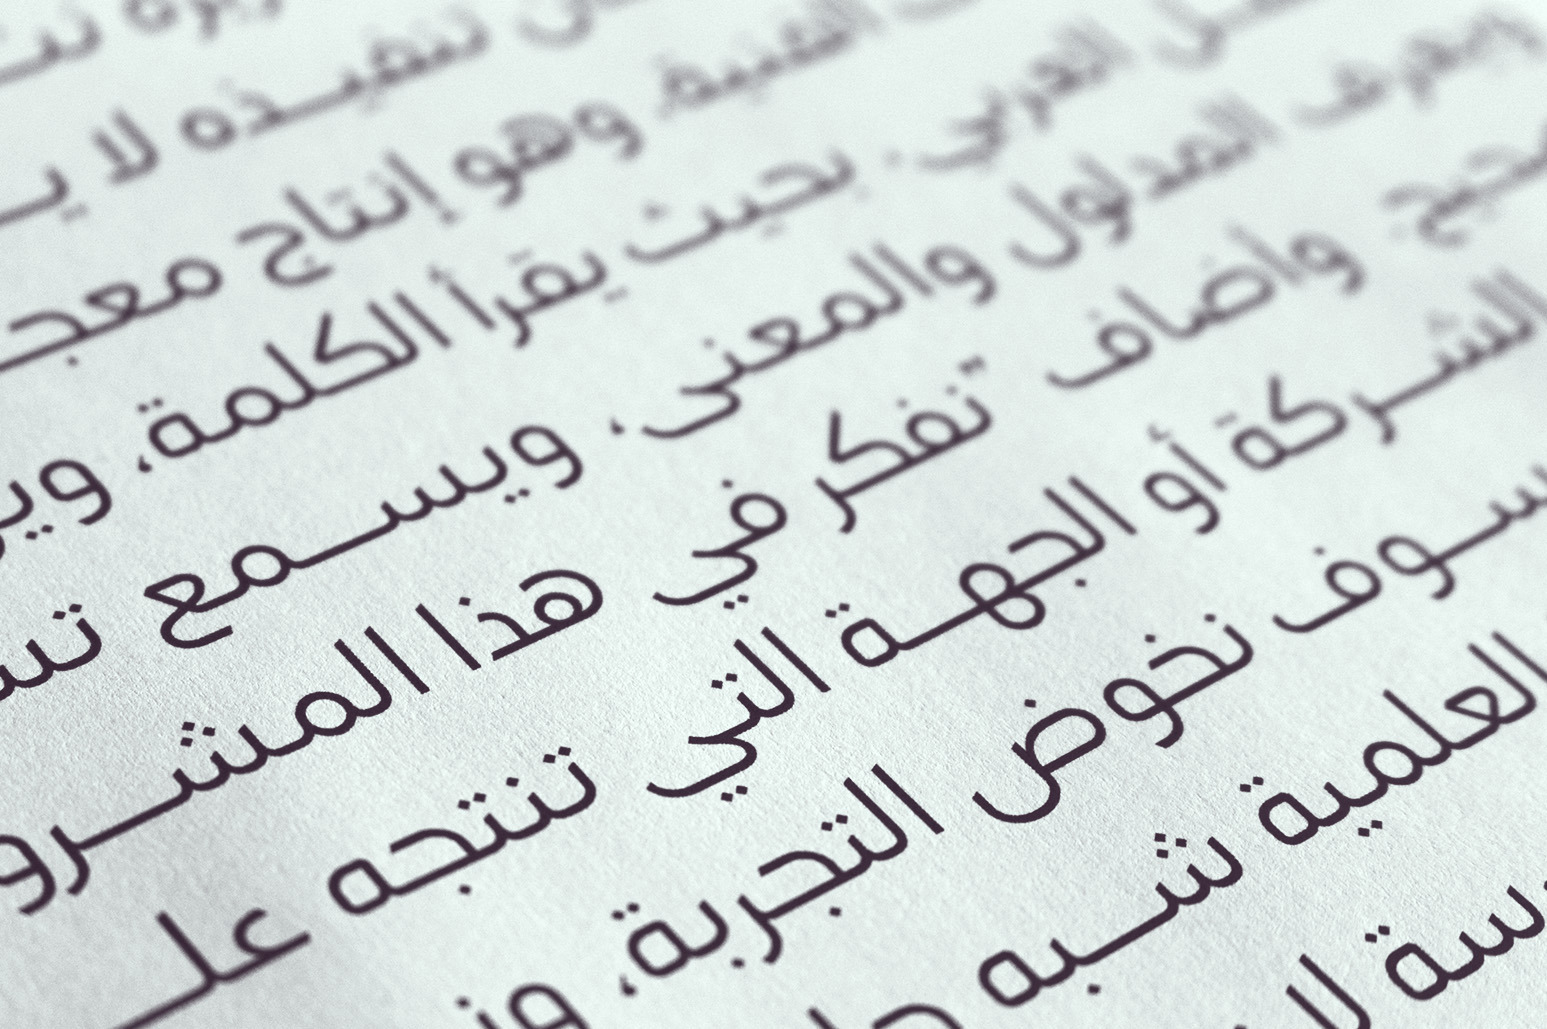 تنفيـذه لا
الفنية وهو إنتاج
العربي. بحيث يقرأ الكلمة،
ويعرف المدلول والمعنى، ويسـمع
واضاف "تفكر في هذا المشـرو
الشـركة أو الجهـة التي تنتجه علـ
سـوف نخوض التجربة،
العلمية شـبه